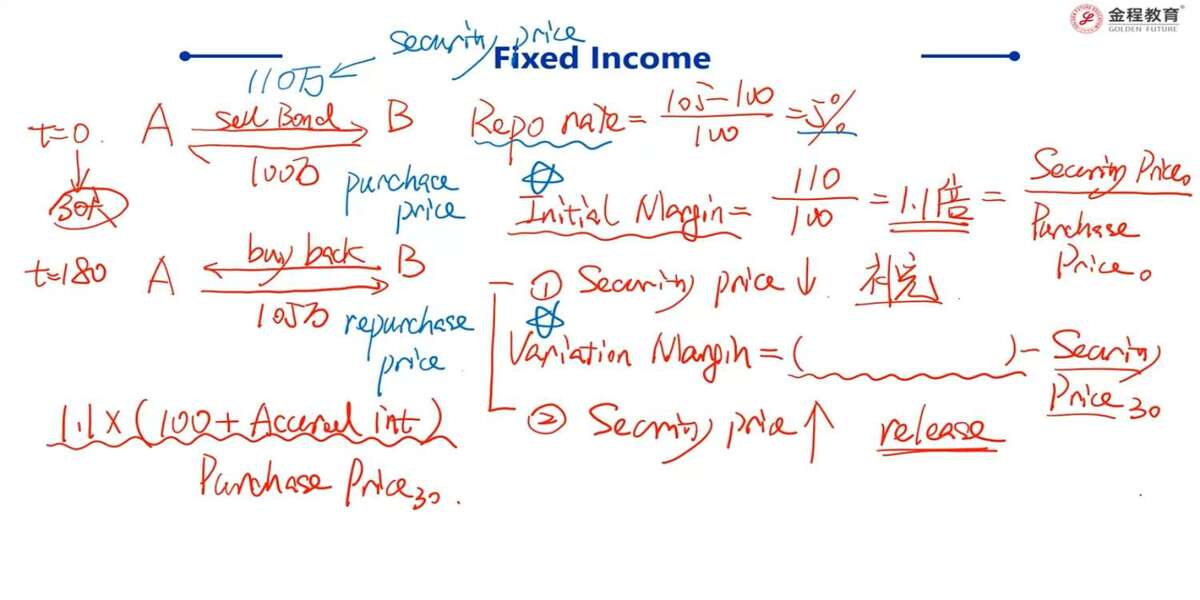 金程教育
GOLDEN FUTURE
Fixed Income
security price
110万
t=0. A sell Bond B
100万
purchace price
30天
t=180 A buy back B
105万
repurchase price
1.1 × (100 + Accrued int)
Purchase Price30.
Repo rate = 105-100 / 100 = 5%
Initial Margin = 110 / 100 = 1.1倍 = Security Price0 / Purchase Price0
① Security price ↓ 补充
Variation Margin = ( ) - Security Price30
② Security price ↑ release